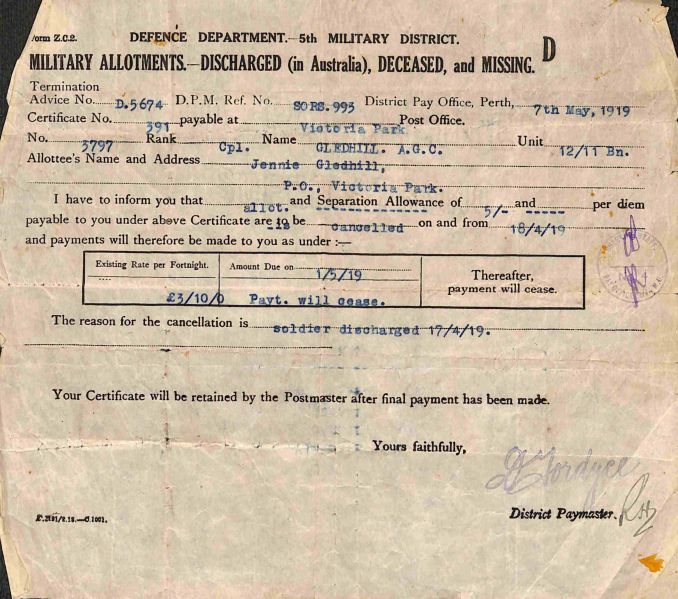 Form Z.C.2.
DEFENCE DEPARTMENT.—5th MILITARY DISTRICT.
D
MILITARY ALLOTMENTS.—DISCHARGED (in Australia), DECEASED, and MISSING.
Termination
Advice No. D.5674 D.P.M. Ref. No. SORS.993 District Pay Office, Perth, 7th May, 1919
Certificate No. 391 payable at Victoria Park Post Office.
No. 3797 Rank Cpl. Name GLEDHILL. A.G.C. Unit 12/11 Bn.
Allottee's Name and Address Jennie Gledhill,
P.O., Victoria Park.
I have to inform you that allot. and Separation Allowance of 5/- and ----- per diem
payable to you under above Certificate are to be cancelled on and from 18/4/19
-is
and payments will therefore be made to you as under :—
Existing Rate per Fortnight. Amount Due on 1/5/19 Thereafter,
payment will cease.
£3/10/0 Payt. will cease.
The reason for the cancellation is soldier discharged 17/4/19.
Your Certificate will be retained by the Postmaster after final payment has been made.
Yours faithfully,
Fordyce
District Paymaster.